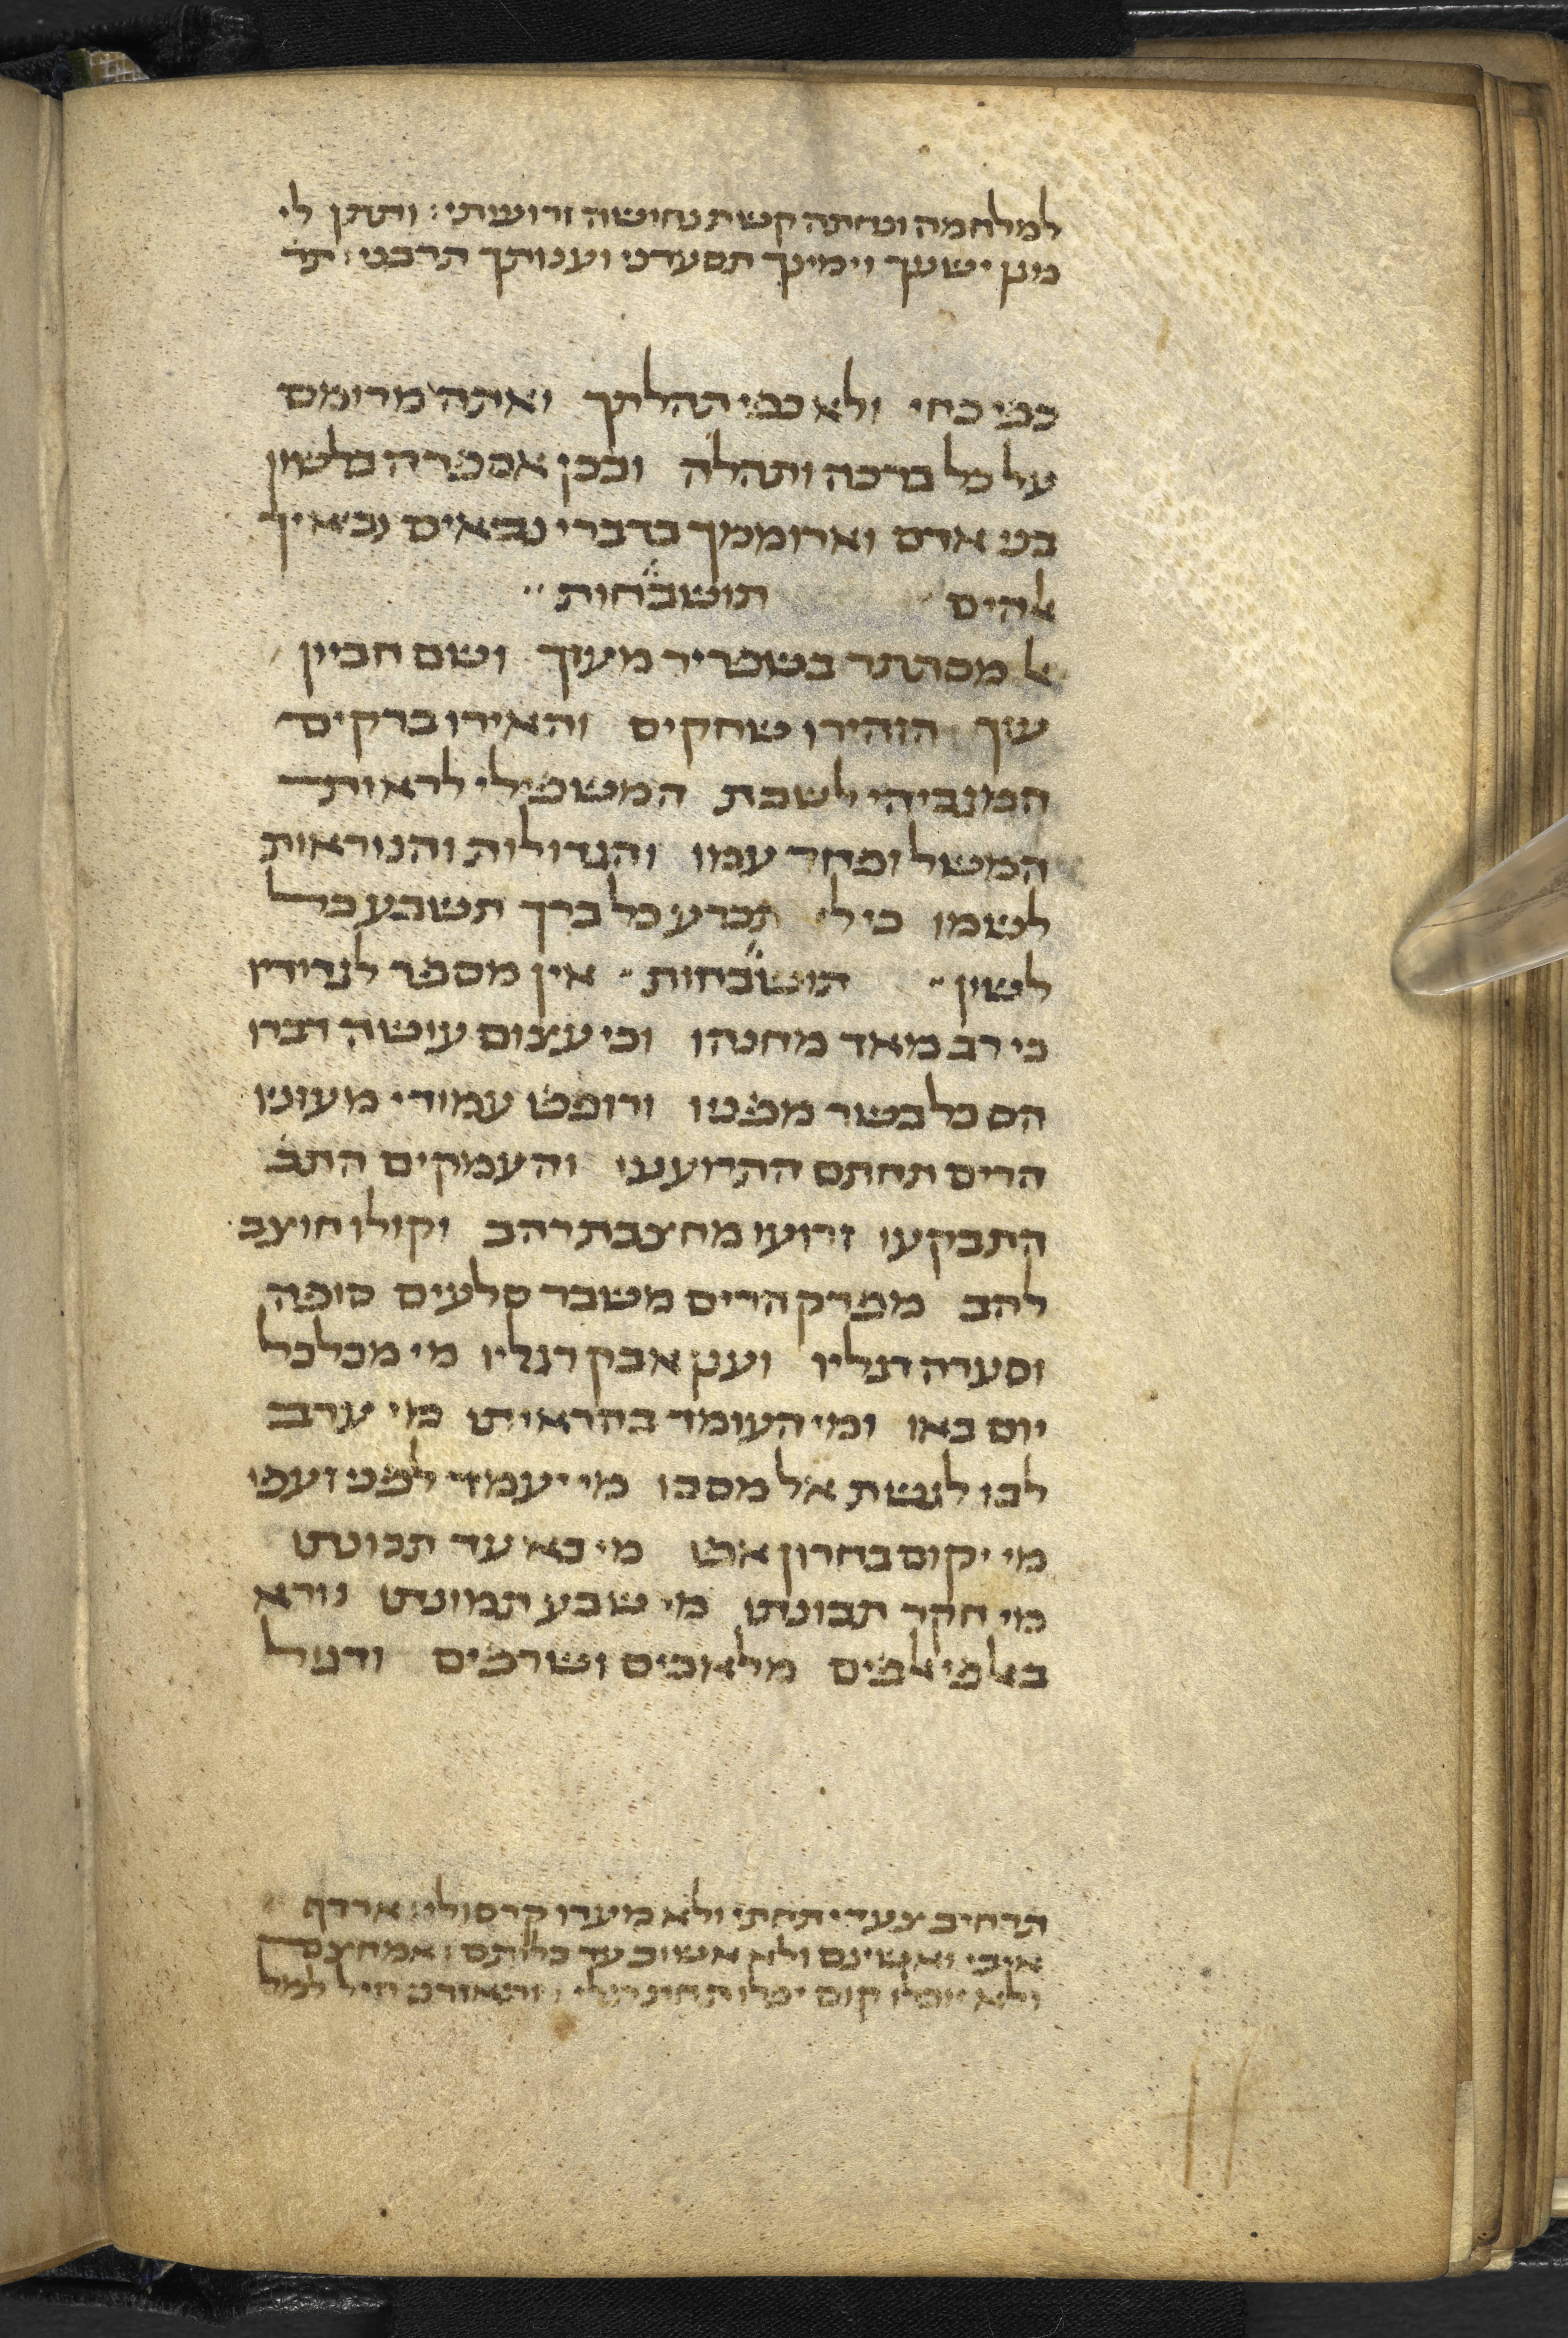 למלחמה ונחתה קשת נחושה זרועותי : ותתן לי
מגן ישעך וימינך תסעדני וענותך תרבני : תר
כפי כחי ולא כפי תהלתך ואתה מרומם
על כל ברכה ותהלה ובכן אספרה בלשון
בני אדם וארוממך בדברי נביאים נביאיך
אלהים תושבחות
אל מסתתר בשפריר מעוך ושם חביון
עוך הזהירו שחקים והאירו ברקים
המגביהי לשבת המשפילי לראות
המשל ופחד עמו והגדולות והנוראות
לשמו כי לו תכרע כל ברך תשבע כל
לשון תושבחות אין מספר לגדודיו
כי רב מאד מחנהו וכי עצום עושה דברו
הס כל בשר מפניו ורופפו עמודי מעונו
הרים תחתם התרועעו והעמקים התב
התבקעו זרועו מחצבת רהב וקולו חוצב
להב מפרק הרים משבר סלעים סופה
וסערה רגליו וענן אבק רגליו מי מכלכל
יום באו ומי העומד בהראותו מי ערב
לבו לגשת אל מסבו מי יעמד לפני זעפו
מי יקום בחרון אפו מי בא עד תכונתו
מי חקר תבונתו מי שבע תמונתו נורא
באלפי אלפים מלאכים ושרפים ודגול
תרחיב צעדי תחתי ולא מעדו קרסולי : ארדף
אויבי ואשיגם ולא אשוב עד כלותם : אמחצם
ולא יוכלו קום יפלו תחת רגלי : ותאזרני חיל למל